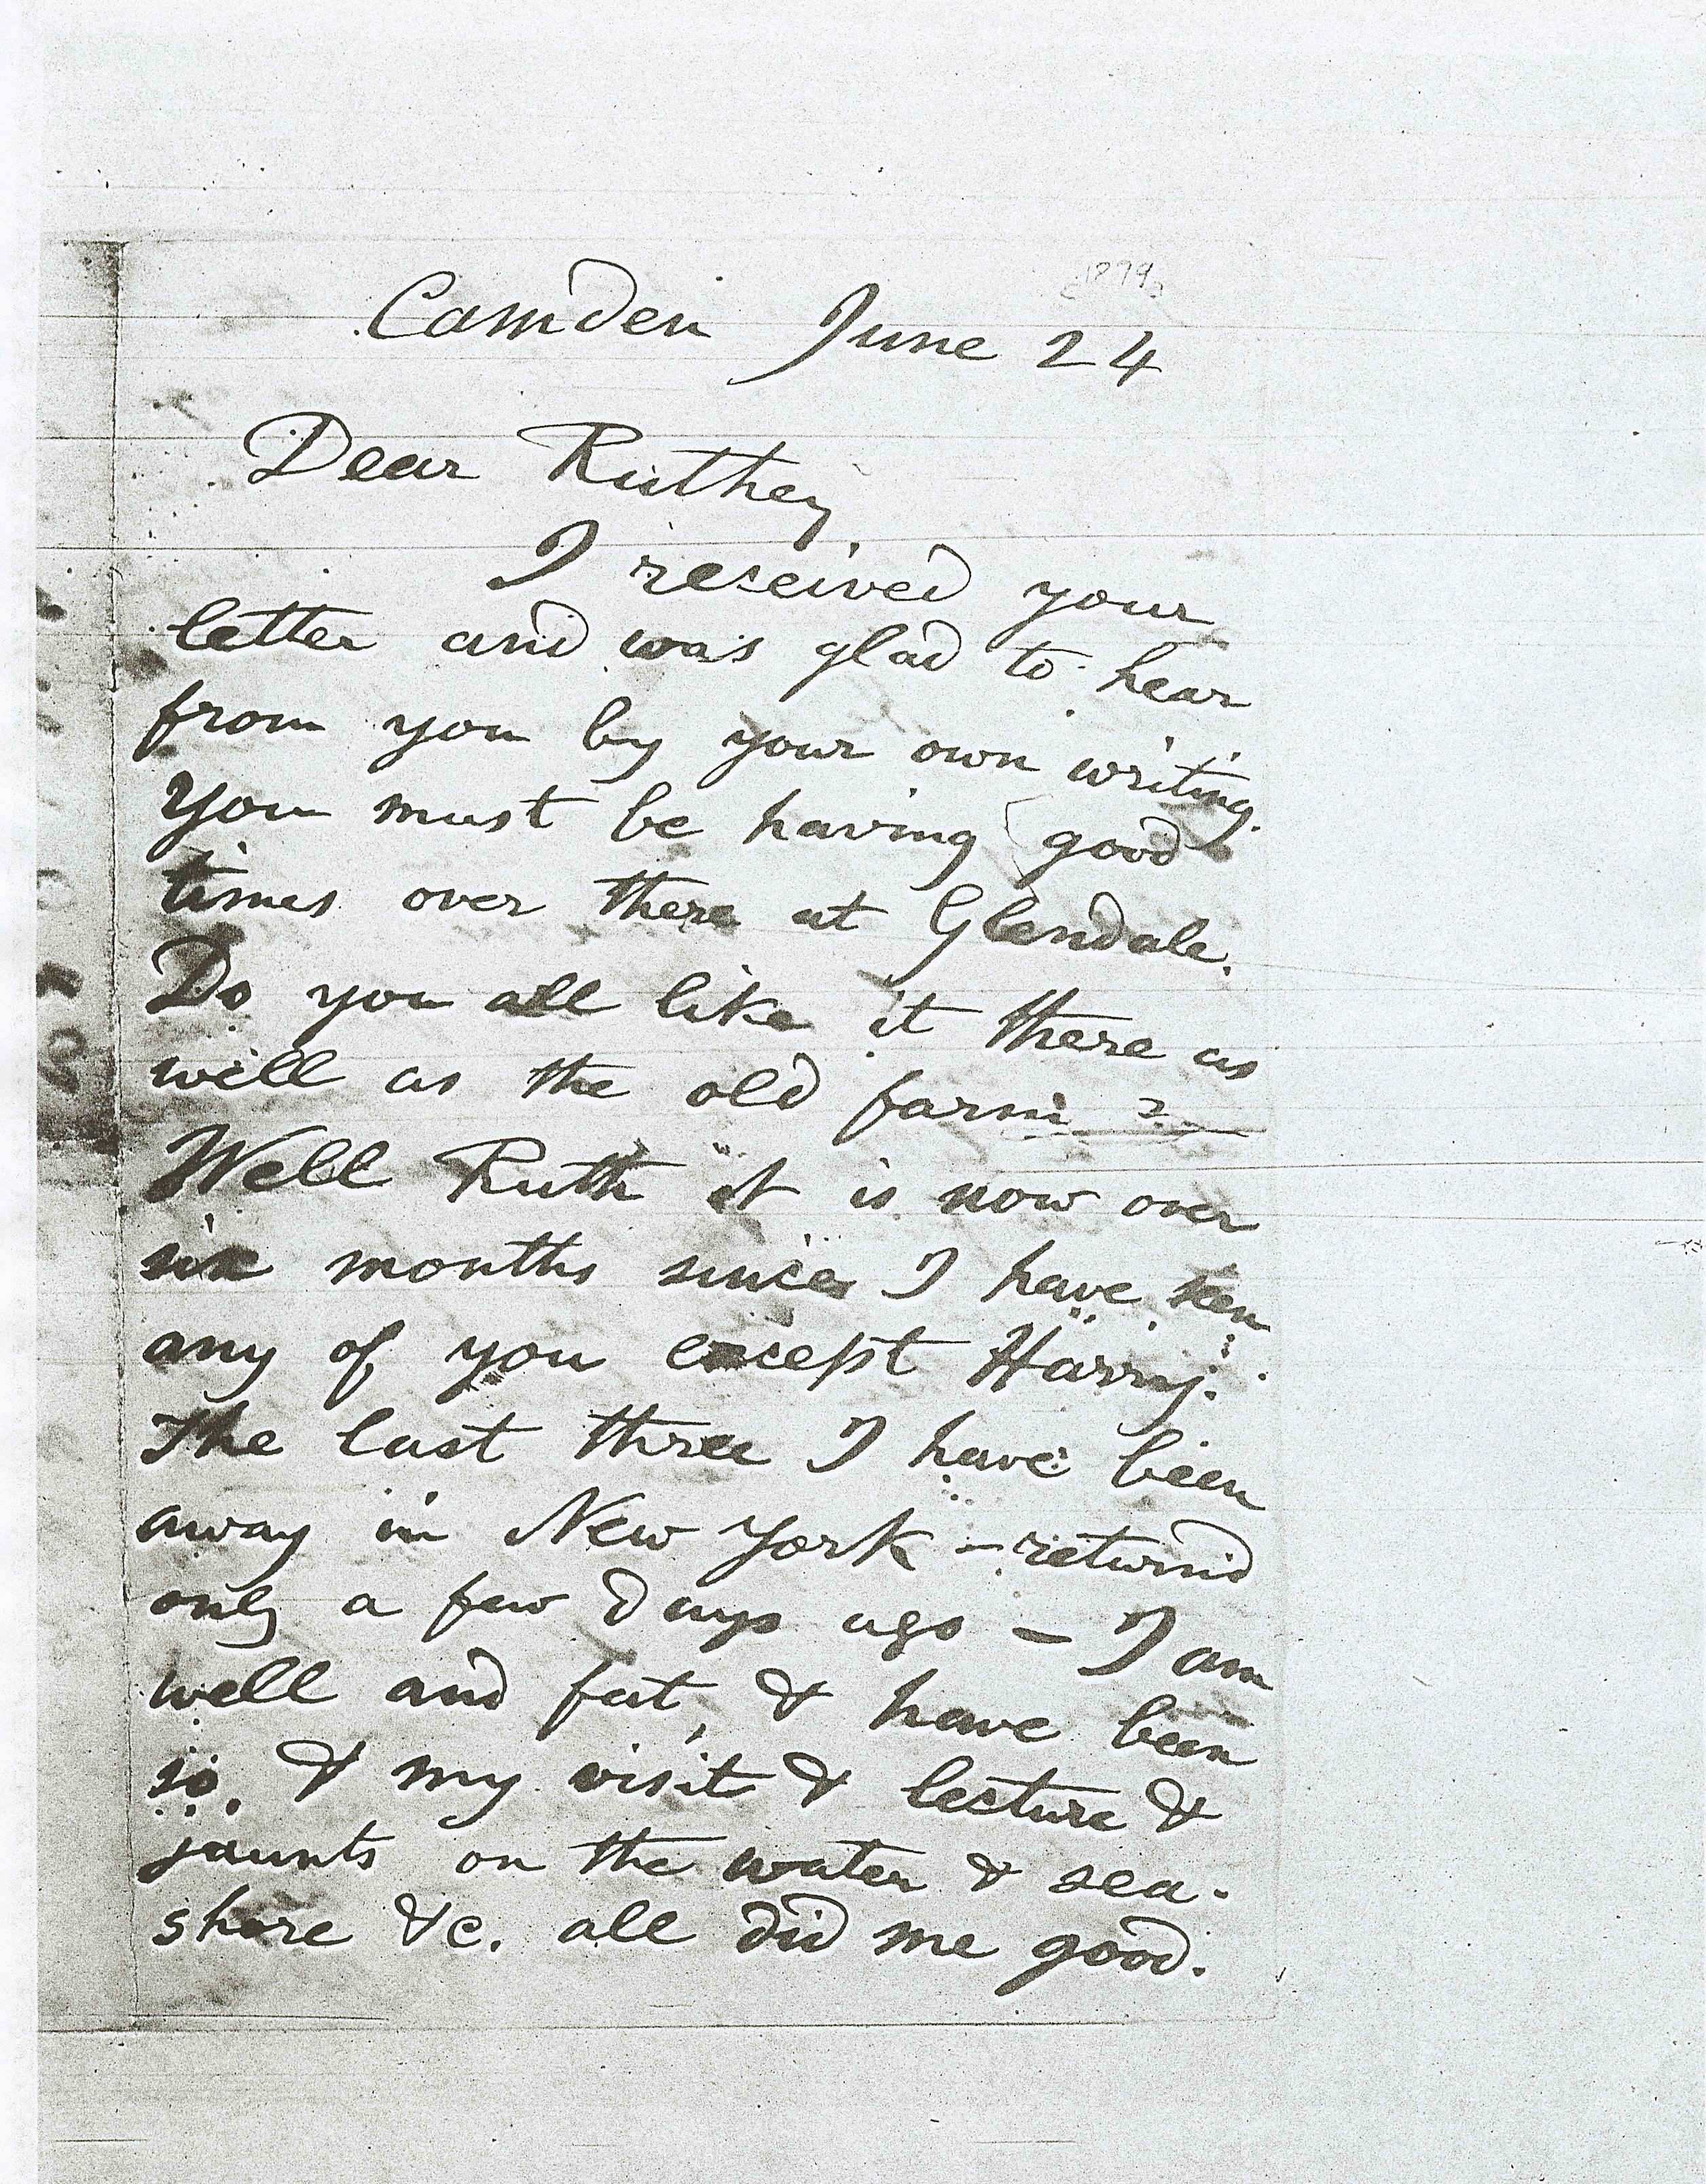 [1879]
Camden June 24
Dear Ruthey
I received your
letter and was glad to hear
from you by your own writing.
You must be having good
times over there at Glendale.
Do you all like it there as
well as the old farm?—
Well Ruth it is now over
six months since I have seen
any of you except Harry.
The last three I have been
away in New York – returnd
only a few days ago – I am
well and fat, & have been
so, & my visit & lecture &
jaunts on the water & sea-
shore &c. all did me good.